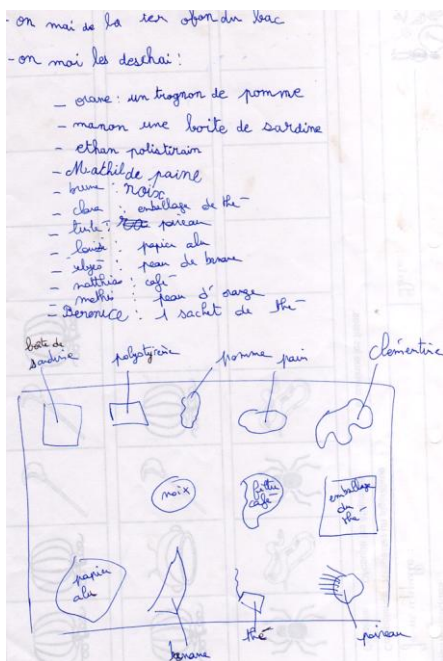 - on mai de la ter o fon du bac
- on mai les deschai :
- orane : un trognon de pomme
- manon une boite de sardine
- ethan polistirain
- Mathilde paine
- brune : noix
- clara : emballage de thé
- : poireau
- : papier alu
- : peau de banane
- matthias : café
- mathis : peau d'orange
- Berenice : 1 sachet de thé
boîte de sardine
polystyrène
pomme
pain
clémentine
noix
filtre café
emballage du thé
papier alu
banane
thé
poireau